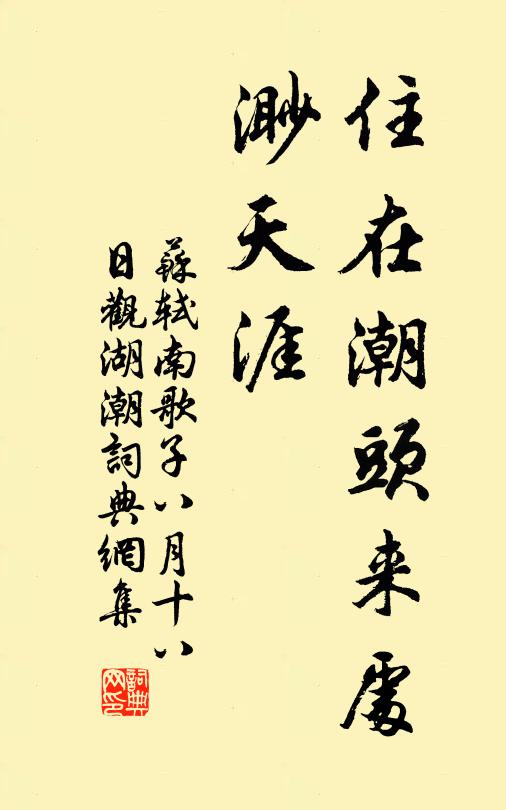 住在潮頭来處
渺天涯
蘇軾南歌子八月十八
日觀湖潮詞典網集
詞典
网印